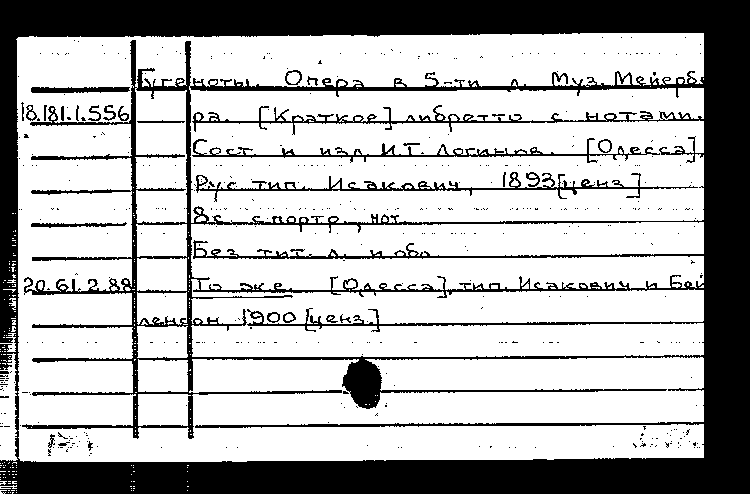 Гугеноты. Опера в 5-ти д. Муз. Мейербе
18.181.1.556 ра. [Краткое] либретто с нотами.
Сост. и изд. И.Т. Логинов. [Одесса],
Рус. тип. Исакович, 1893 [ценз.]
8с. с портр., нот.
Без тит. л. и обл.
20.61.2.88 То же. [Одесса], тип. Исакович и Бей
ленсон, 1900 [ценз.]